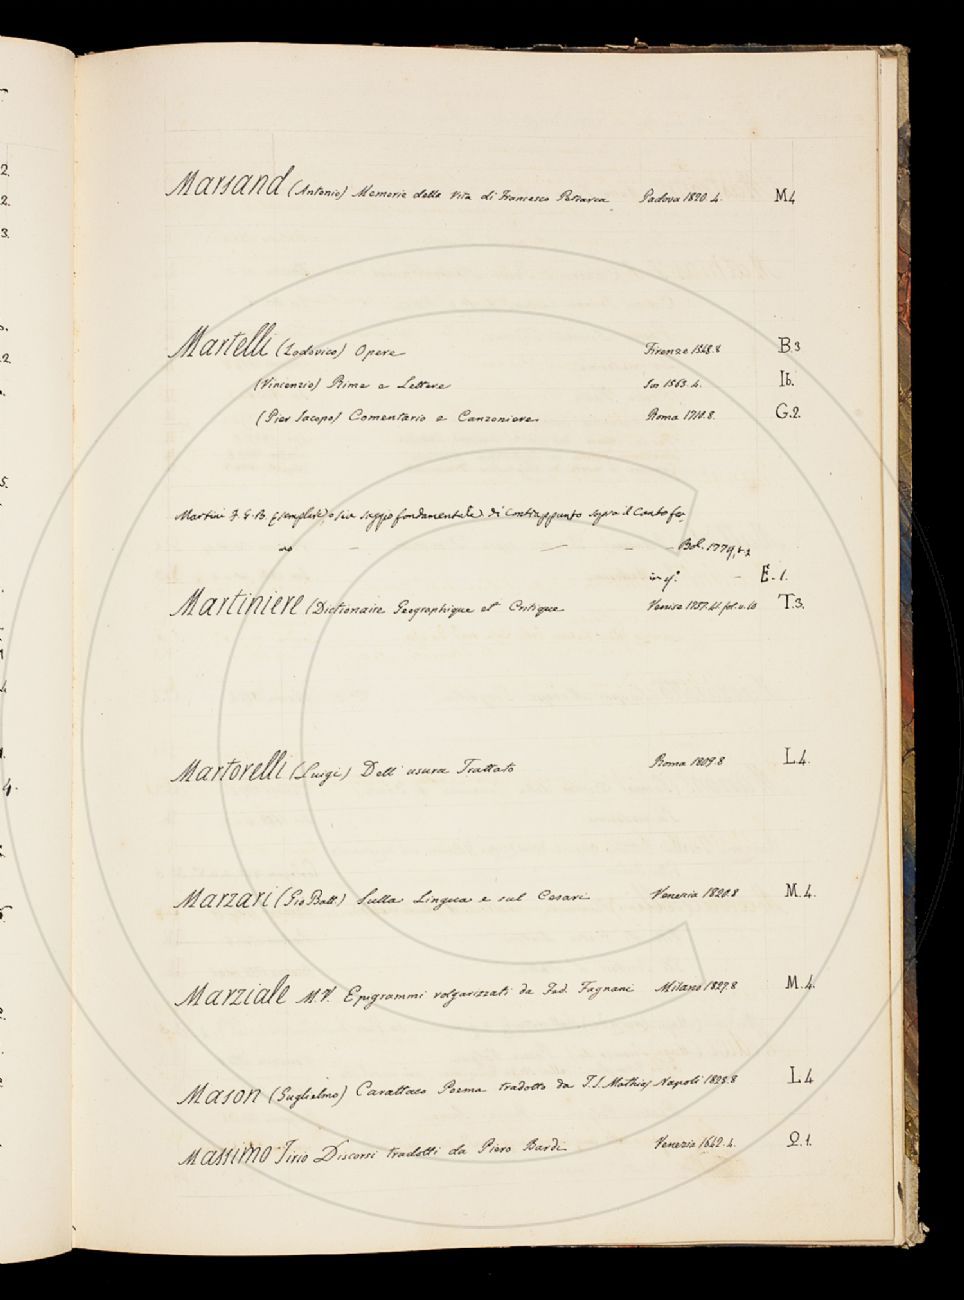 Marsand (Antonio) Memorie della Vita di Francesco Petrarca Padova 1820. 4. M4
Martelli (Lodovico) Opere Firenze 1548. 8 B.3
(Vincenzio) Rime e Lettere 1563. 4. Ib.
(Pier Jacopo) Comentario e Canzoniere Roma 1710. 8. G.2.
Martini F. G. B. Esemplare o sia saggio fondamentale di Contrappunto sopra il Canto fer
mo — — — — Bol. 1774,
in f. — E. 1.
Martiniere (Dictionaire Geographique et Critique Venise 1737. 41. fol. v. 10 T.3.
Martorelli (Luigi) Dell' usura Trattato Roma 1809. 8 L.4.
Marzari (Gio Batt) Sulla Lingua e sul Cesari Venezia 1820. 8 M.4.
Marziale M. V. Epigrammi volgarizzati da Fed. Fagnani Milano 1827. 8 M.4.
Mason (Guglielmo) Carattaco Poema tradotto da T. J. Mathias Napoli 1823. 8 L4
Massimo Tirio Discorsi tradotti da Piero Bardi Venezia 1642. 4. Q.1.